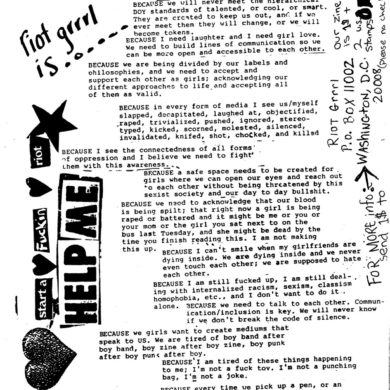 riot grrrl
is........
BECAUSE we will never meet the hierarchical
BOY standards of talented, or cool, or smart.
They are created to keep us out, and if we
ever meet them they will change, or we will
become tokens.
BECAUSE I need laughter and I need girl love.
We need to build lines of communication so we
can be more open and accessible to each other.
BECAUSE we are being divided by our labels and
philosophies, and we need to accept and
support each other as girls; acknowledging our
different approaches to life and accepting all
of them as valid.
BECAUSE in every form of media I see us/myself
slapped, decapitated, laughed at, objectified,
raped, trivialized, pushed, ignored, stereo-
typed, kicked, scorned, molested, silenced,
invalidated, knifed, shot, chokked, and killed
BECAUSE I see the connectedness of all forms
of oppression and I believe we need to fight
them with this awareness.
BECAUSE a safe space needs to be created for
girls where we can open our eyes and reach out
to each other without being threatened by this
sexist society and our day to day bullshit.
BECAUSE we need to acknowledge that our blood
is being spilt; that right now a girl is being
raped or battered and it might be me or you or
your mom or the girl you sat next to on the
bus last Tuesday, and she might be dead by the
time you finish reading this. I am not making
this up.
BECAUSE I can't smile when my girlfriends are
dying inside. We are dying inside and we never
even touch each other; we are supposed to hate
each other.
BECAUSE I am still fucked up, I am still deal-
ing with internalized racism, sexism, classism
homophobia, etc., and I don't want to do it
alone.
BECAUSE we need to talk to each other. Commun-
ication/inclusion is key. We will never know
if we don't break the code of silence.
BECAUSE we girls want to create mediums that
speak to US. We are tired of boy band after
boy band, boy zine after boy zine, boy punk
after boy punk after boy.
BECAUSE I am tired of these things happening
to me; I'm not a fuck toy. I'm not a punching
bag, I'm not a joke.
BECAUSE every time we pick up a pen, or an
start a
Fuckin
riot
HELP ME
FOR MORE info:
send $ to
Riot Grrrl
P.O. BOX 11002
WASHINGTON, D.C.
20008
our zine
is
2 us
stamps
(please no nove